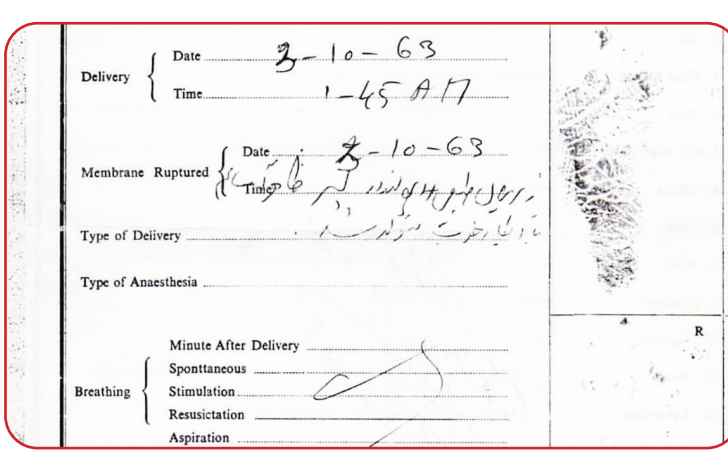 Delivery
Date 2-10-63
Time 1-45 AM
Membrane Ruptured
Date 2-10-63
Time
Type of Delivery
Type of Anaesthesia
Breathing
Minute After Delivery
Sponttaneous
Stimulation
Resusictation
Aspiration
R